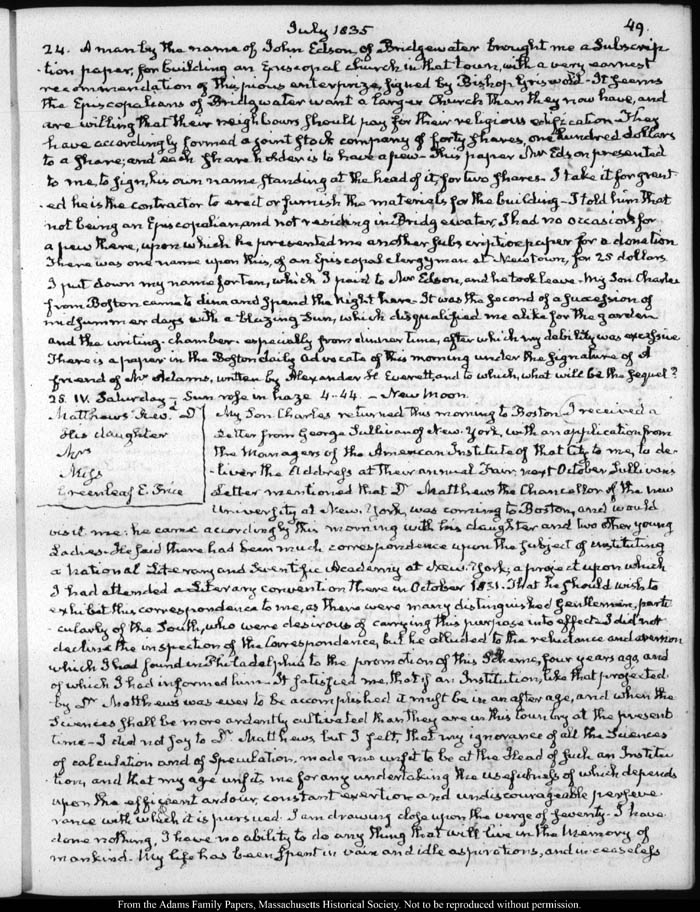 July 1835
49.
24. A man by the name of John Edson, of Bridgewater brought me a Subscrip
-tion paper, for building an Episcopal church in that town, with a very earnest
recommendation of this pious enterprize, signed by Bishop Griswold - It seems
the Episcopaleans of Bridgwater want a larger Church than they now have, and
are willing that their neighbours should pay for their religious edification. They
have accordingly formed a joint stock company of forty shares, one hundred dollars
to a share; and each share holder is to have a pew - This paper Mr Edson presented
to me, to sign, his own name standing at the head of it, for two shares. I take it for grant
-ed he is the contractor to erect or furnish the materials for the building - I told him that
not being an Episcopalian, and not residing in Bridgewater, I had no occasion for
a pew there, upon which he presented me another subscription paper for a donation
There was one name upon this, of an Episcopal clergyman at Newtown, for 25 dollars
I put down my name for ten, which I paid to Mr Edson, and he took leave. My Son Charles
from Boston came to dine and spend the night here. It was the second of a succession of
midsummer days with a blazing Sun, which disqualified me alike for the garden
and the writing-chamber. especially from dinner time, after which my debility was excessive
There is a paper in the Boston daily Advocate of this morning under the signature of A
friend of Mr Adams, written by Alexander H. Everett, and to which, what will be the sequel?
25. IV. Saturday - Sun rose in haze 4-44. - New Moon.
Matthews Revd. D
His daughter
Mrs
Miss
Greenleaf E. Price
My Son Charles returned this morning to Boston. I received a
Letter from George Sullivan of New-York, with an application from
the Managers of the American Institute of that City to me, to de-
-liver the Address at their annual Fair, next October. Sullivan's
Letter mentioned that Dr Matthews the Chancellor of the new
University at New-York, was coming to Boston, and would
visit me: he came accordingly this morning with his daughter and two other young
Ladies. He said there had been much correspondence upon the subject of instituting
a National Literary and Scientific Academy at New-York; a project upon which
I had attended a Literary convention there in October 1831. That he should wish to
exhibit this correspondence to me, as there were many distinguished Gentlemen, parti
-cularly of the South, who were desirous of carrying this purpose into effect. I did not
decline the inspection of the Correspondence, but he alluded to the reluctance and aversion
which I had found in Philadelphia to the promotion of this Scheme, four years ago, and
of which I had informed him. It satisfied me, that if an Institution, like that projected
by Dr Matthews was ever to be accomplished it must be in an after age, and when the
Sciences shall be more ardently cultivated than they are in this Country at the present
time - I did not say to Dr Matthews, but I felt, that my ignorance of all the Sciences
of calculation and of Speculation, made me unfit to be at the Head of such an Institu
-tion, and that my age unfits me for any undertaking the usefulness of which depends
upon the efficient ardour, constant exertion and undiscourageable perseve-
rance with which it is pursued. I am drawing close upon the verge of seventy. I have
done nothing, I have no ability to do any thing that will live in the Memory of
mankind. My life has been spent in vain and idle aspirations, and in ceaseless
From the Adams Family Papers, Massachusetts Historical Society. Not to be reproduced without permission.